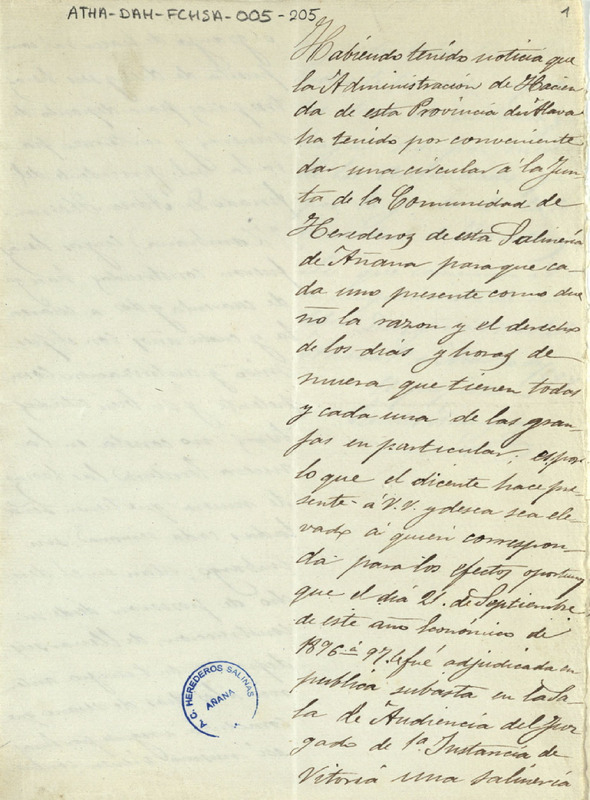 ATHA-DAH-FCHSA-005-205
1
Habiendo tenido noticia que
la Administración de Hacien
da de esta Provincia de Alava
ha tenido por conveniente
dar una circular á la Jun
ta de la Comunidad de
Herederos de esta Salinería
de Añana para que ca
da uno presente como due
ño la razon y el derecho
de los dias y horas de
muera que tienen todas
y cada una de las gran
jas en particular, es por
lo que el dicente hace pre-
sente á V.V. y desea sea ele-
vado á quien correspon-
da para los efectos oportunos
que el dia 21 de Septiembre
de este año Económico de
1896 á 97. le fué adjudicada en
publica subasta en la Sa
la de Audiencia del Juz
gado de 1ª Instancia de
Vitoria una Salinería
HEREDEROS SALINAS
AÑANA